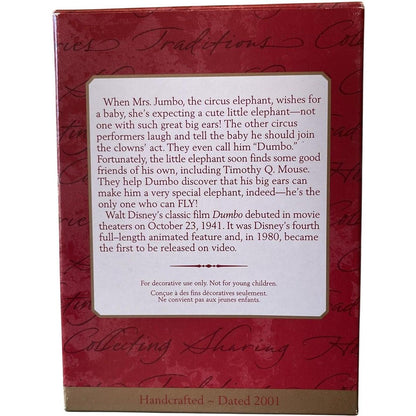 ries Traditions
Collecting
When Mrs. Jumbo, the circus elephant, wishes for
a baby, she's expecting a cute little elephant—not
one with such great big ears! The other circus
performers laugh and tell the baby he should join
the clowns' act. They even call him "Dumbo."
Fortunately, the little elephant soon finds some good
friends of his own, including Timothy Q. Mouse.
They help Dumbo discover that his big ears can
make him a very special elephant, indeed—he's the
only one who can FLY!
Walt Disney's classic film Dumbo debuted in movie
theaters on October 23, 1941. It was Disney's fourth
full–length animated feature and, in 1980, became
the first to be released on video.
For decorative use only. Not for young children.
Conçue à des fins décoratives seulement.
Ne convient pas aux jeunes enfants.
Collecting Sharing
Handcrafted ~ Dated 2001